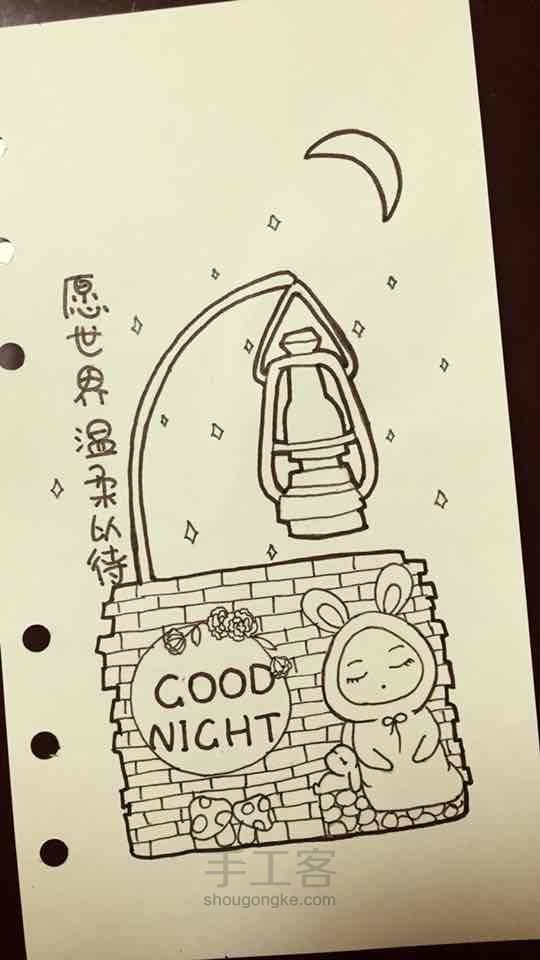 愿世界温柔以待
GOOD
NIGHT
手工客
shougongke.com